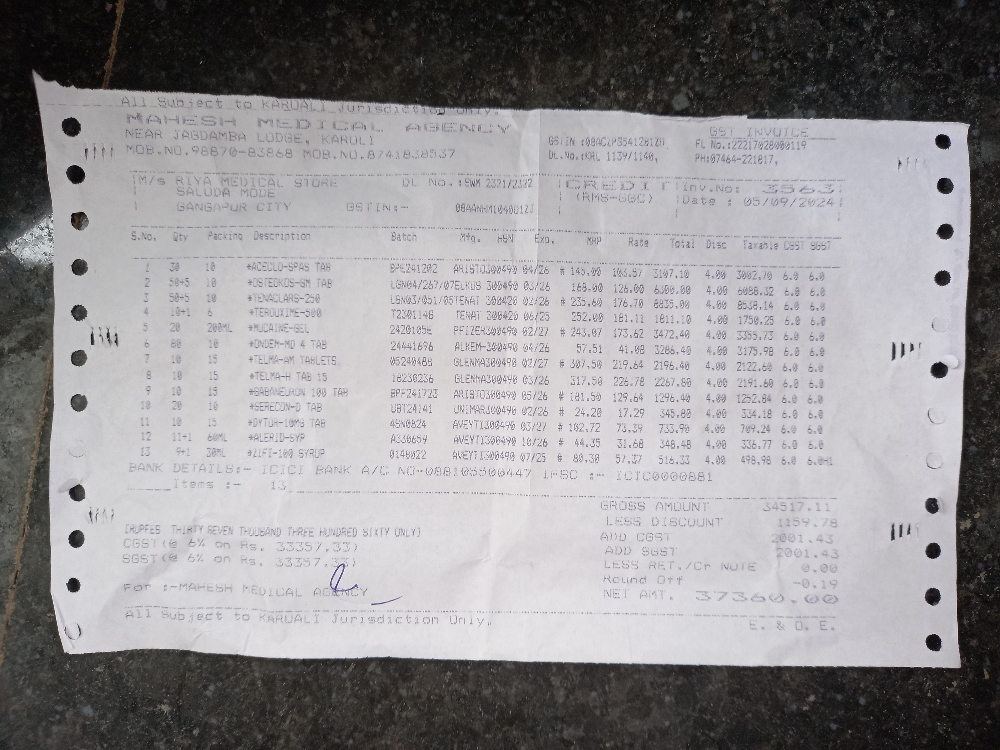 All Subject to KARUALI Jurisdiction Only.
MAHESH MEDICAL AGENCY
NEAR JAGDAMBA LODGE, KARULI
MOB.NO.98870-83868 MOB.NO.8741838537
GST INVOICE
FL No.:22217028000119
DL.No.:KRL 1139/1140,
PH:07464-221817,
M/s RIYA MEDICAL STORE
SALODA MODE
GANGAPUR CITY
DL No.:SWM 2321/2322
GSTIN:-
CREDIT
(RMS-GGC)
Inv.No: 3563
Date : 05/09/2024
S.No. Qty Packing Description Batch Mfg. HSN Exp. MRP Rate Total Disc Taxable CGST SGST
1 30 10 *ACECLO-SPAS TAB BPE241202 ARISTO300490 04/26 # 145.00 103.57 3107.10 4.00 3002.70 6.0 6.0
2 50+5 10 *OSTEOKOS-GM TAB 300490 03/26 168.00 126.00 6300.00 4.00 6088.32 6.0 6.0
3 50+5 10 *TENACLARS-250 TENAT 300420 02/26 # 235.60 176.70 8835.00 4.00 8538.14 6.0 6.0
4 10+1 6 *TEROUXIME-500 T2301146 TENAT 300420 06/25 252.00 181.11 1811.10 4.00 1750.25 6.0 6.0
5 20 200ML *MUCAINE-GEL 2420105E PFIZER300490 02/27 # 243.07 173.62 3472.40 4.00 3355.73 6.0 6.0
6 80 10 *ONDEM-MD 4 TAB 24441696 ALKEM-300490 04/26 57.51 41.08 3286.40 4.00 3175.98 6.0 6.0
7 10 15 *TELMA-AM TABLETS 05240488 GLENMA300490 02/27 # 307.50 219.64 2196.40 4.00 2122.60 6.0 6.0
8 10 15 *TELMA-H TAB 15 18230236 GLENMA300490 03/26 317.50 226.78 2267.80 4.00 2191.60 6.0 6.0
9 10 15 *GABANEURON 100 TAB BPF241723 ARISTO300490 05/26 # 181.50 129.64 1296.40 4.00 1252.84 6.0 6.0
10 20 10 *SERECON-D TAB UBT24141 UNIMAR300490 02/26 # 24.20 17.29 345.80 4.00 334.18 6.0 6.0
11 10 15 *DYTOR-10MG TAB 45N0824 AVEYTI300490 03/27 # 102.72 73.39 733.90 4.00 709.24 6.0 6.0
12 11+1 60ML *ALERID-SYP A330659 AVEYTI300490 10/26 # 44.35 31.68 348.48 4.00 336.77 6.0 6.0
13 9+1 30ML 0148022 AVEYTI300490 07/25 # 80.30 57.37 516.33 4.00 498.98 6.0
BANK DETAILS:- ICICI BANK A/C NO-088105500447 IFSC :- ICIC0000881
Items :- 13
GROSS AMOUNT 34517.11
LESS DISCOUNT 1159.78
ADD CGST 2001.43
ADD SGST 2001.43
LESS RET./Cr NOTE 0.00
Round Off -0.19
NET AMT. 37360.00
[RUPEES THIRTY SEVEN THOUSAND THREE HUNDRED SIXTY ONLY]
CGST(@ 6% on Rs. 33357.33)
SGST(@ 6% on Rs. 33357.33)
For :-MAHESH MEDICAL AGENCY
All Subject to KARUALI Jurisdiction Only.
E. & O. E.